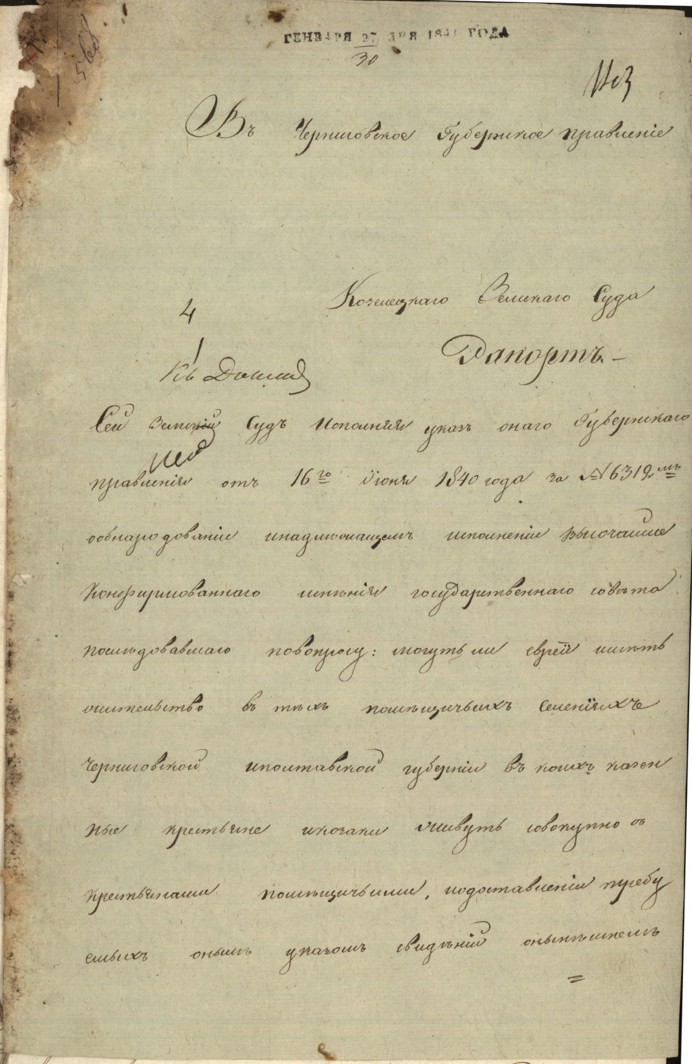 ГЕНВАРЯ 27 ДНЯ 1841 ГОДА
30
Въ Черниговское Губернское правленіе
Козелецкаго Земскаго Суда
4
Рапортъ
Сей Земскій Судъ Исполняя указъ онаго Губернскаго
правленія отъ 16го Іюня 1840 года за № 6312мъ
ообнародованіи инадлежащемъ исполненіи высочайше
Конфирмованнаго мнѣнія государственнаго совѣта
послѣдовавшаго повопросу: могутъ ли евреи имѣть
жительство въ тѣхъ помѣщичьихъ селеніяхъ
Черниговской иполтавской губерніи въ коихъ казен
ные крестьяне икозаки живутъ совокупно съ
крестьянами помѣщичьими, иодоставленіи требу
емыхъ онымъ указомъ свидѣній оныпѣшнемъ